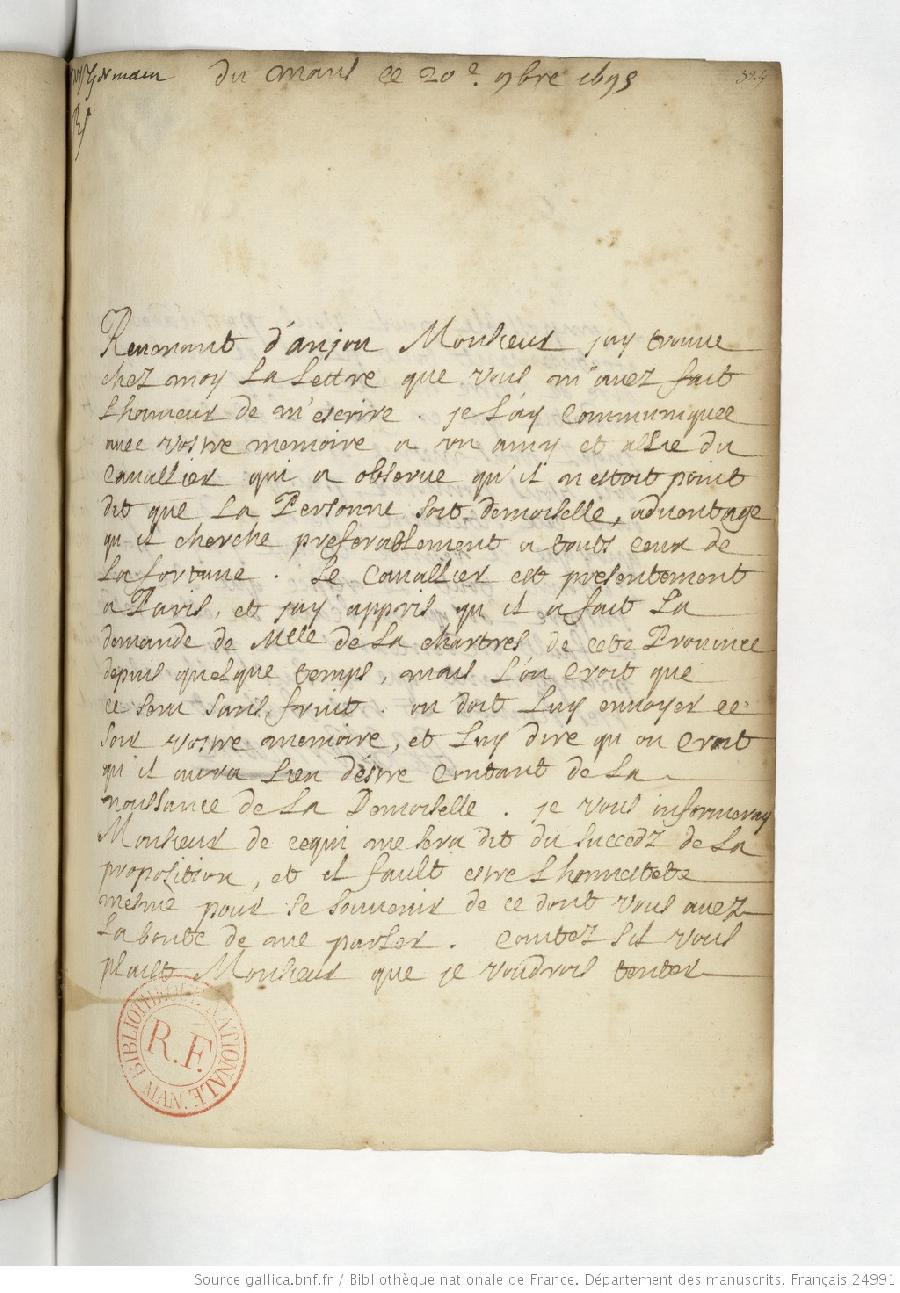 Germain du mans ce 20e. 9bre 1695
R
Reuenant d'anjou Monsieur jay trouue
chez moy La Lettre que vous m'auez fait
Lhonneur de m'escrire . je Lay communiquee
auec vostre memoire a vn amy et allie du
Cauallier qui a obserue qu'il n'estoit point
dit que La Personne soit demoiselle, aduentage
qu'il cherche preferablement a touts ceux de
La fortune . Le Cauallier est presentement
a Paris, et jay appris qu'il a fait La
demande de Melle de La chartres de cette Prouince
depuis quelque temps, mais L'on croit que
ce sera sans fruit . on doit Luy enuoyer ce
soir vostre memoire, et Luy dire qu'on croit
qu'il aura Lieu d'estre contant de La
naissance de La Demoiselle . je vous informeray
Monsieur de cequi me sera dit du succedz de La
proposition, et il fault estre Lhonnestete
mesme pour se souuenir de ce dont vous auez
La bonte de me parler . Contez sil vous
plaist Monsieur que je voudrois tenter
BIBLIOTHEQUE NATIONALE
R.F.
MAN.
Source gallica.bnf.fr / Bibliothèque nationale de France. Département des manuscrits. Français 24991